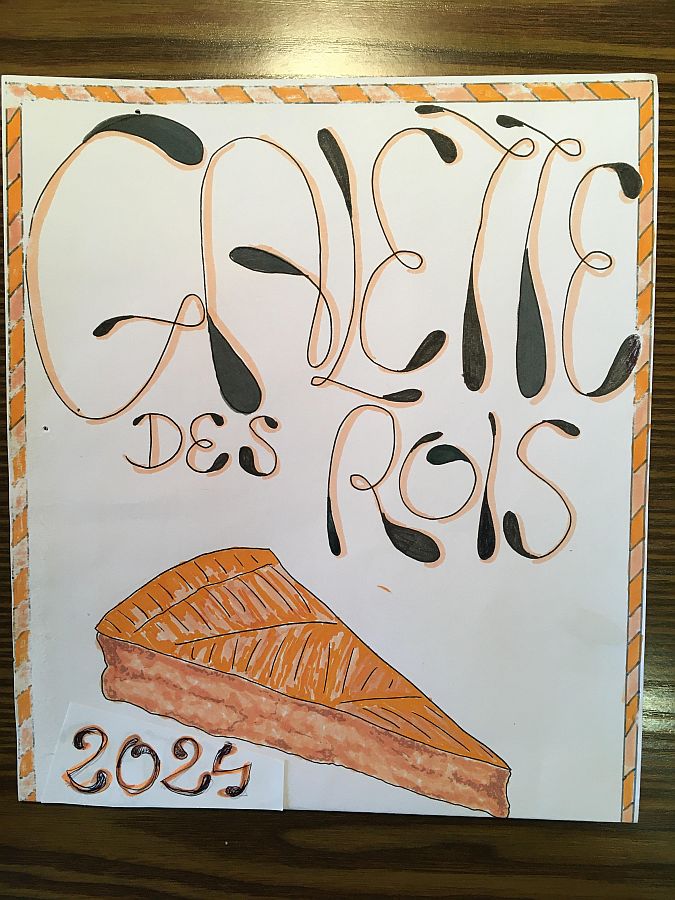 GALETTE
DES
ROIS
2024